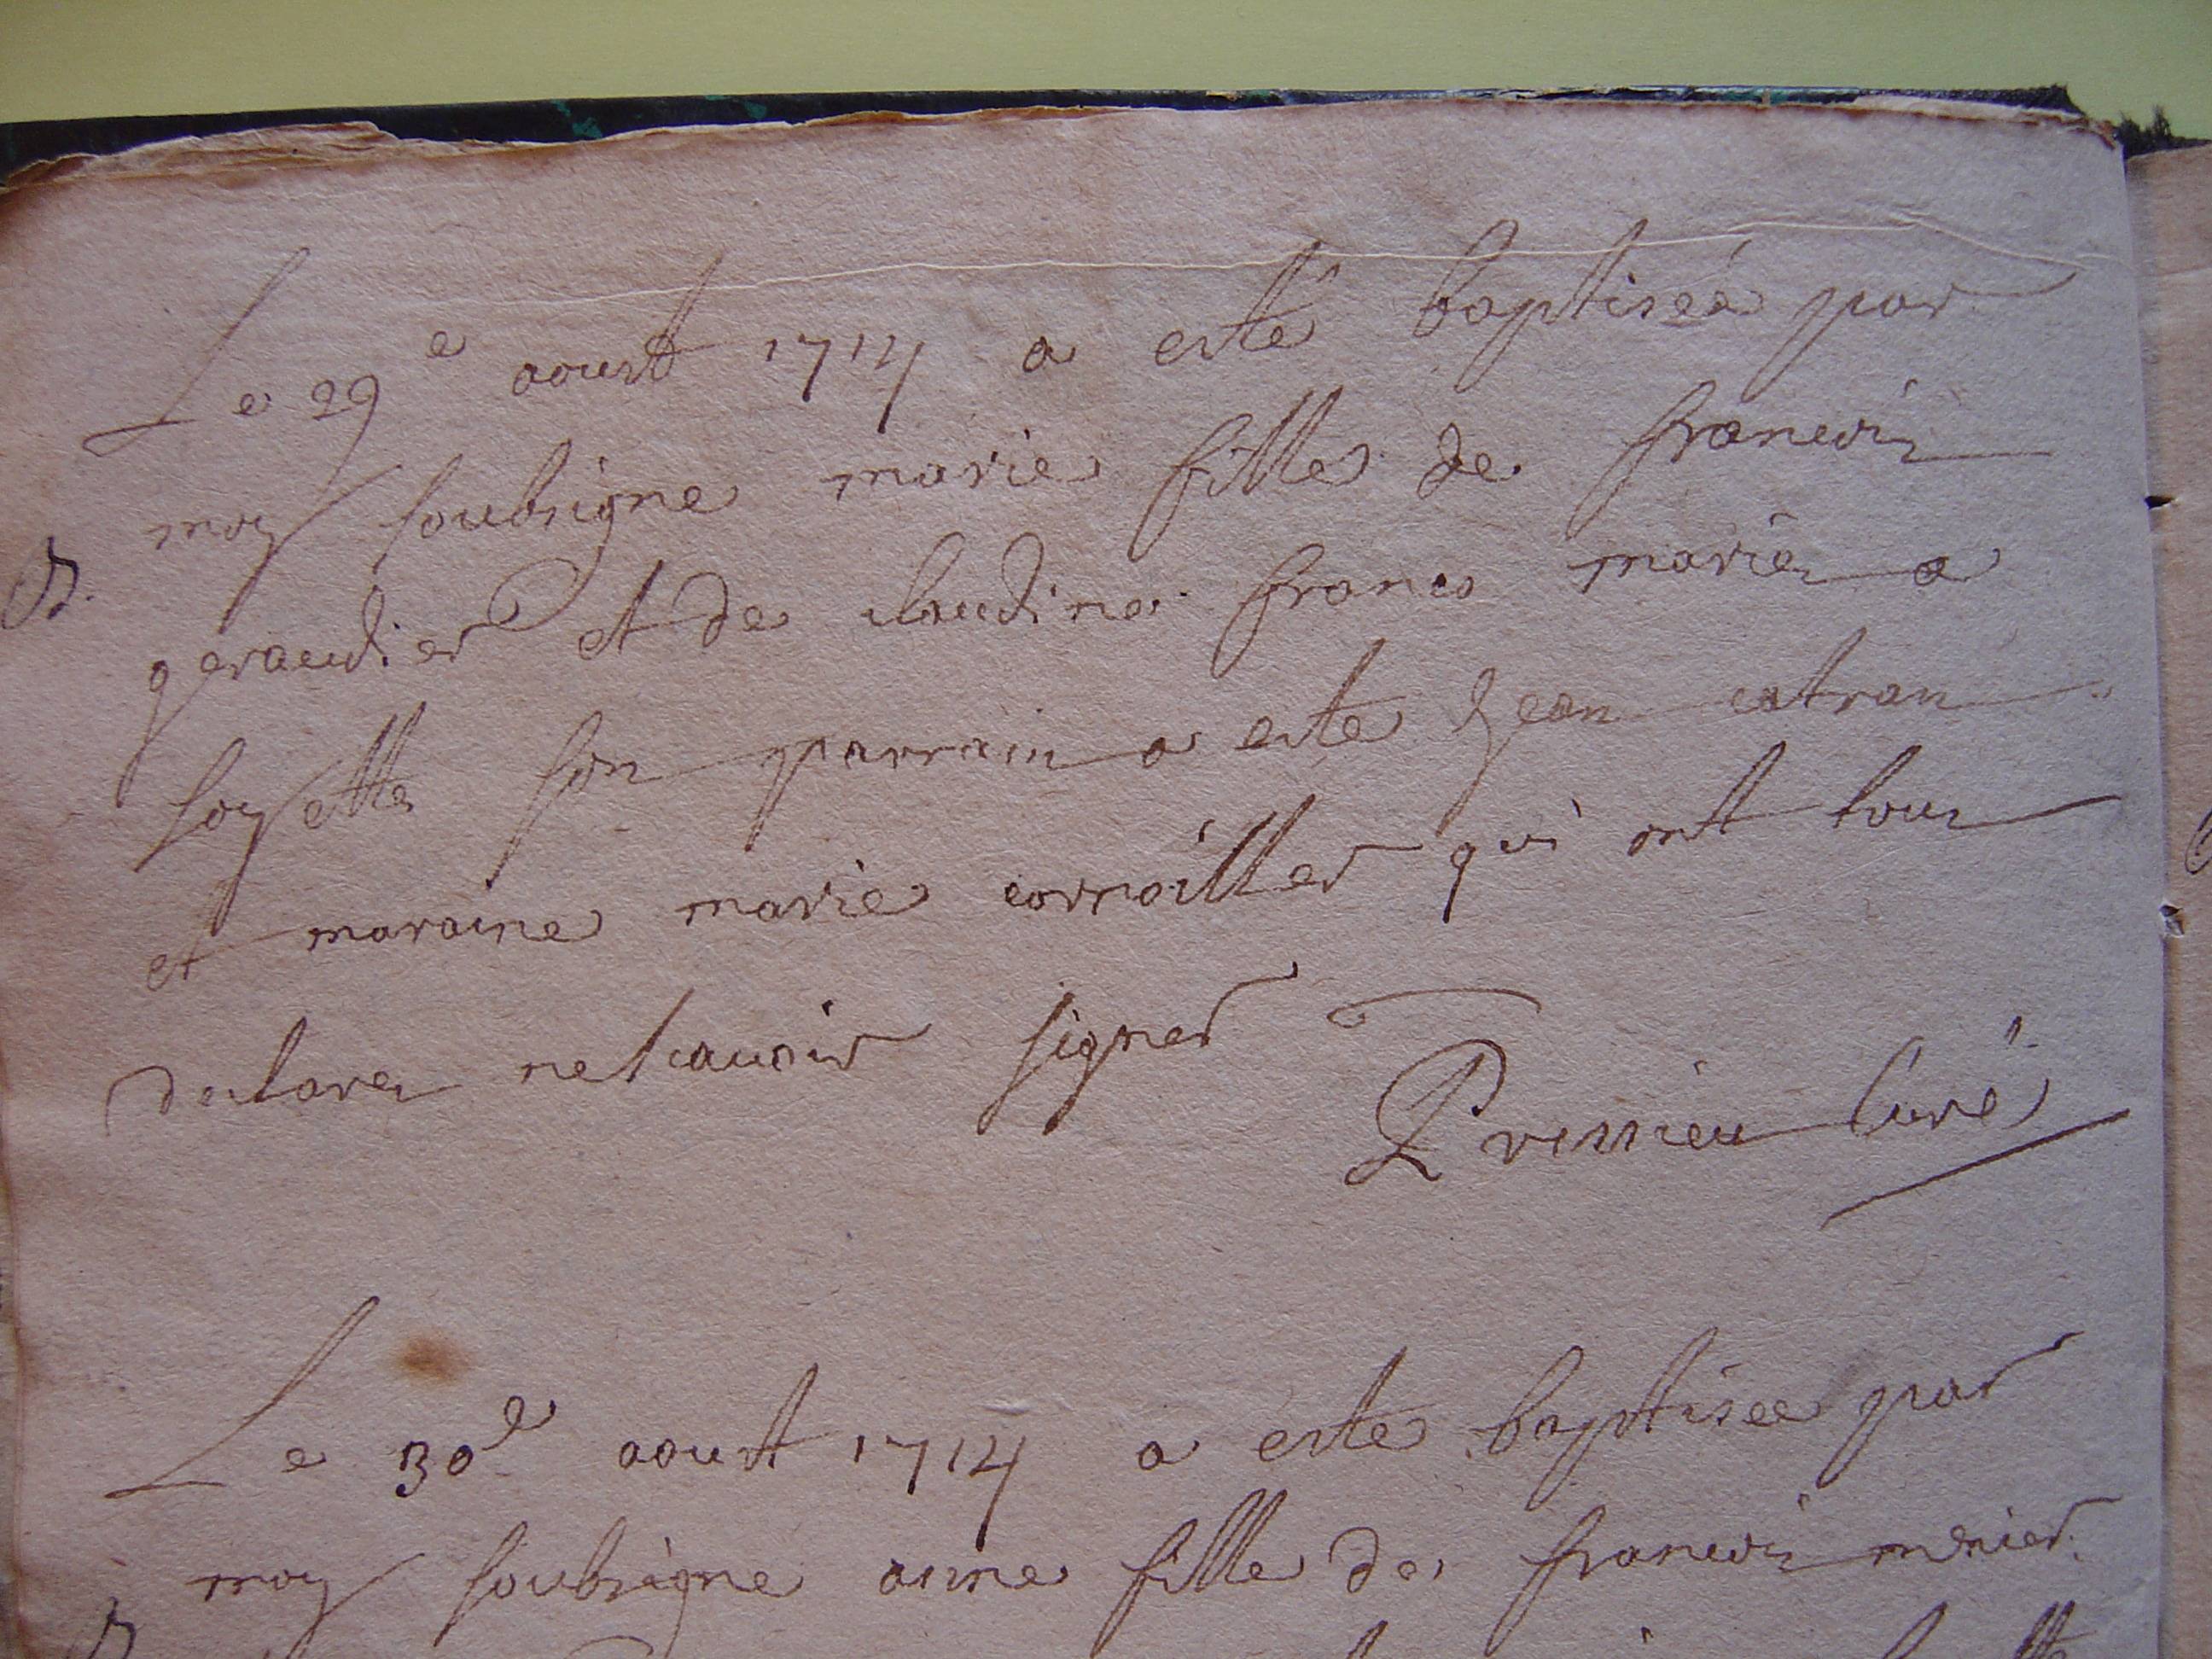 Le 29e aoust 1714 a esté baptiseé par
moy soubsigne marie fille de francois
B. geraudier et de claudine franco mariez a
soyette son parrain a este Jean catran
et maraine marie cornillier qui ont tous
declarez ne scavoir signer
Pressieu Curé
Le 30e aoust 1714 a este baptisee par
moy soubsigne anne fille de francois menier
B